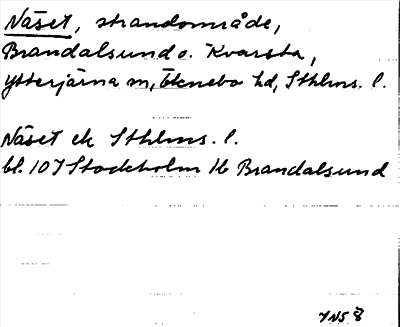 Näset, strandområde,
Brandalsund o. Kvarsta,
Ytterjärna sn, Öknebo hd, Sthlms. l.
Näset ek Sthlms. l.
bl. 10 I Stockholm Hb Brandalsund